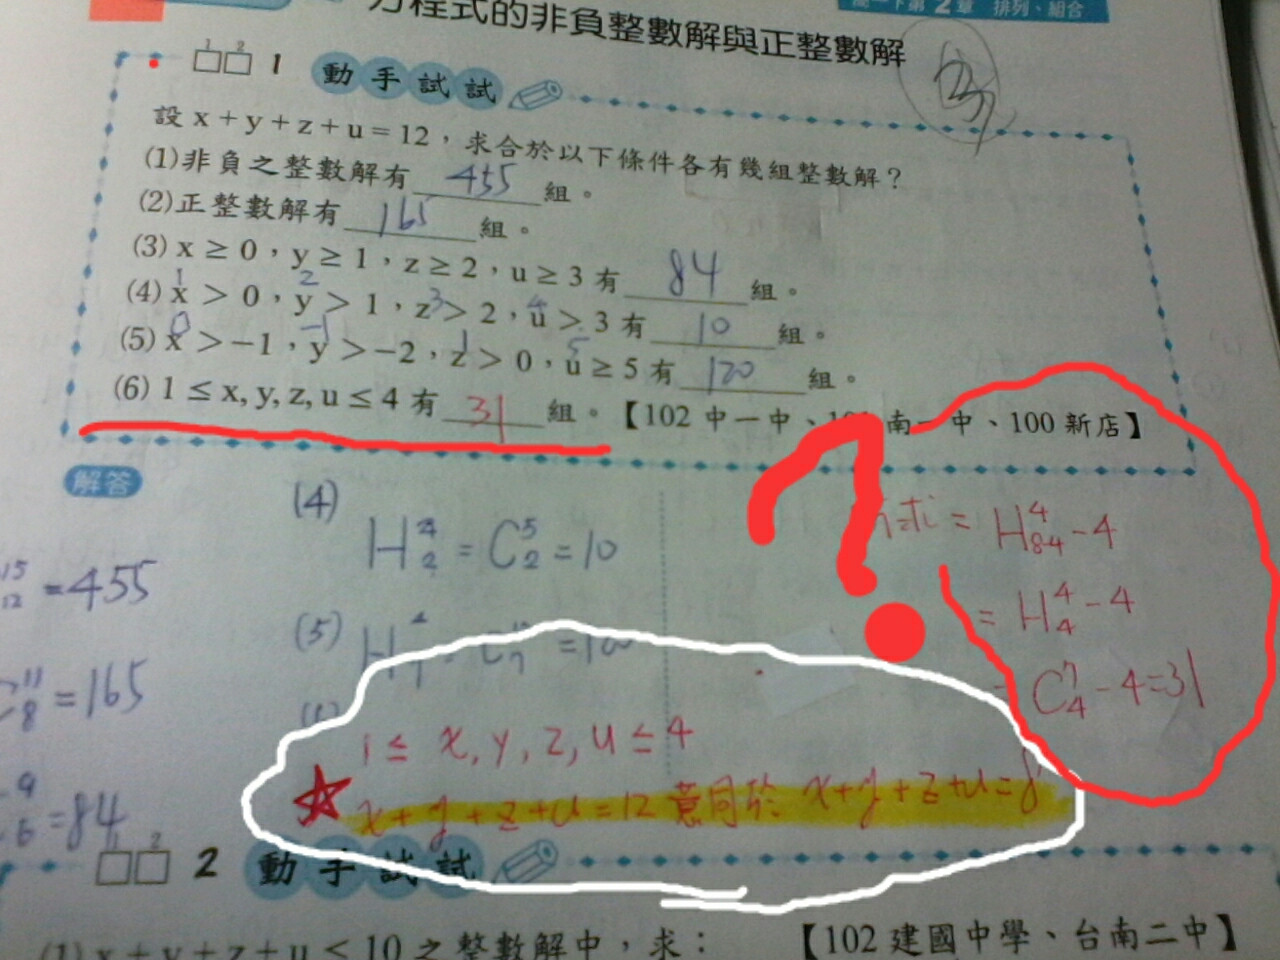 方程式的非負整數解與正整數解
第2章 排列、組合
1 2
1 動手試試
設 x+y+z+u=12,求合於以下條件各有幾組整數解?
(1)非負之整數解有 455 組。
(2)正整數解有 165 組。
(3) x ≥ 0,y ≥ 1,z ≥ 2,u ≥ 3 有 84 組。
1 2 3 4
(4) x > 0,y > 1,z > 2,u > 3 有 10 組。
0 -1 1 5
(5) x > -1,y > -2,z > 0,u ≥ 5 有 120 組。
(6) 1 ≤ x, y, z, u ≤ 4 有 31 組。【102 中一中、南一中、100 新店】
解答
15
12 =455
C 11 8 = 165
9
6 =84
(4)
H 4 2 = C 5 2 = 10
(5)
= H 4 8-4 - 4
= H 4 4 - 4
= C 7 4 - 4=31
1 ≤ x, y, z, u ≤ 4
x+y+z+u=12 意同於 x+y+z+u=8
2
2 動手試試
(1) x+y+z+u<10 之整數解中,求:
【102 建國中學、台南二中】